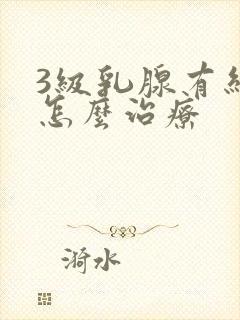 3級乳腺有
怎麼治療
漪水